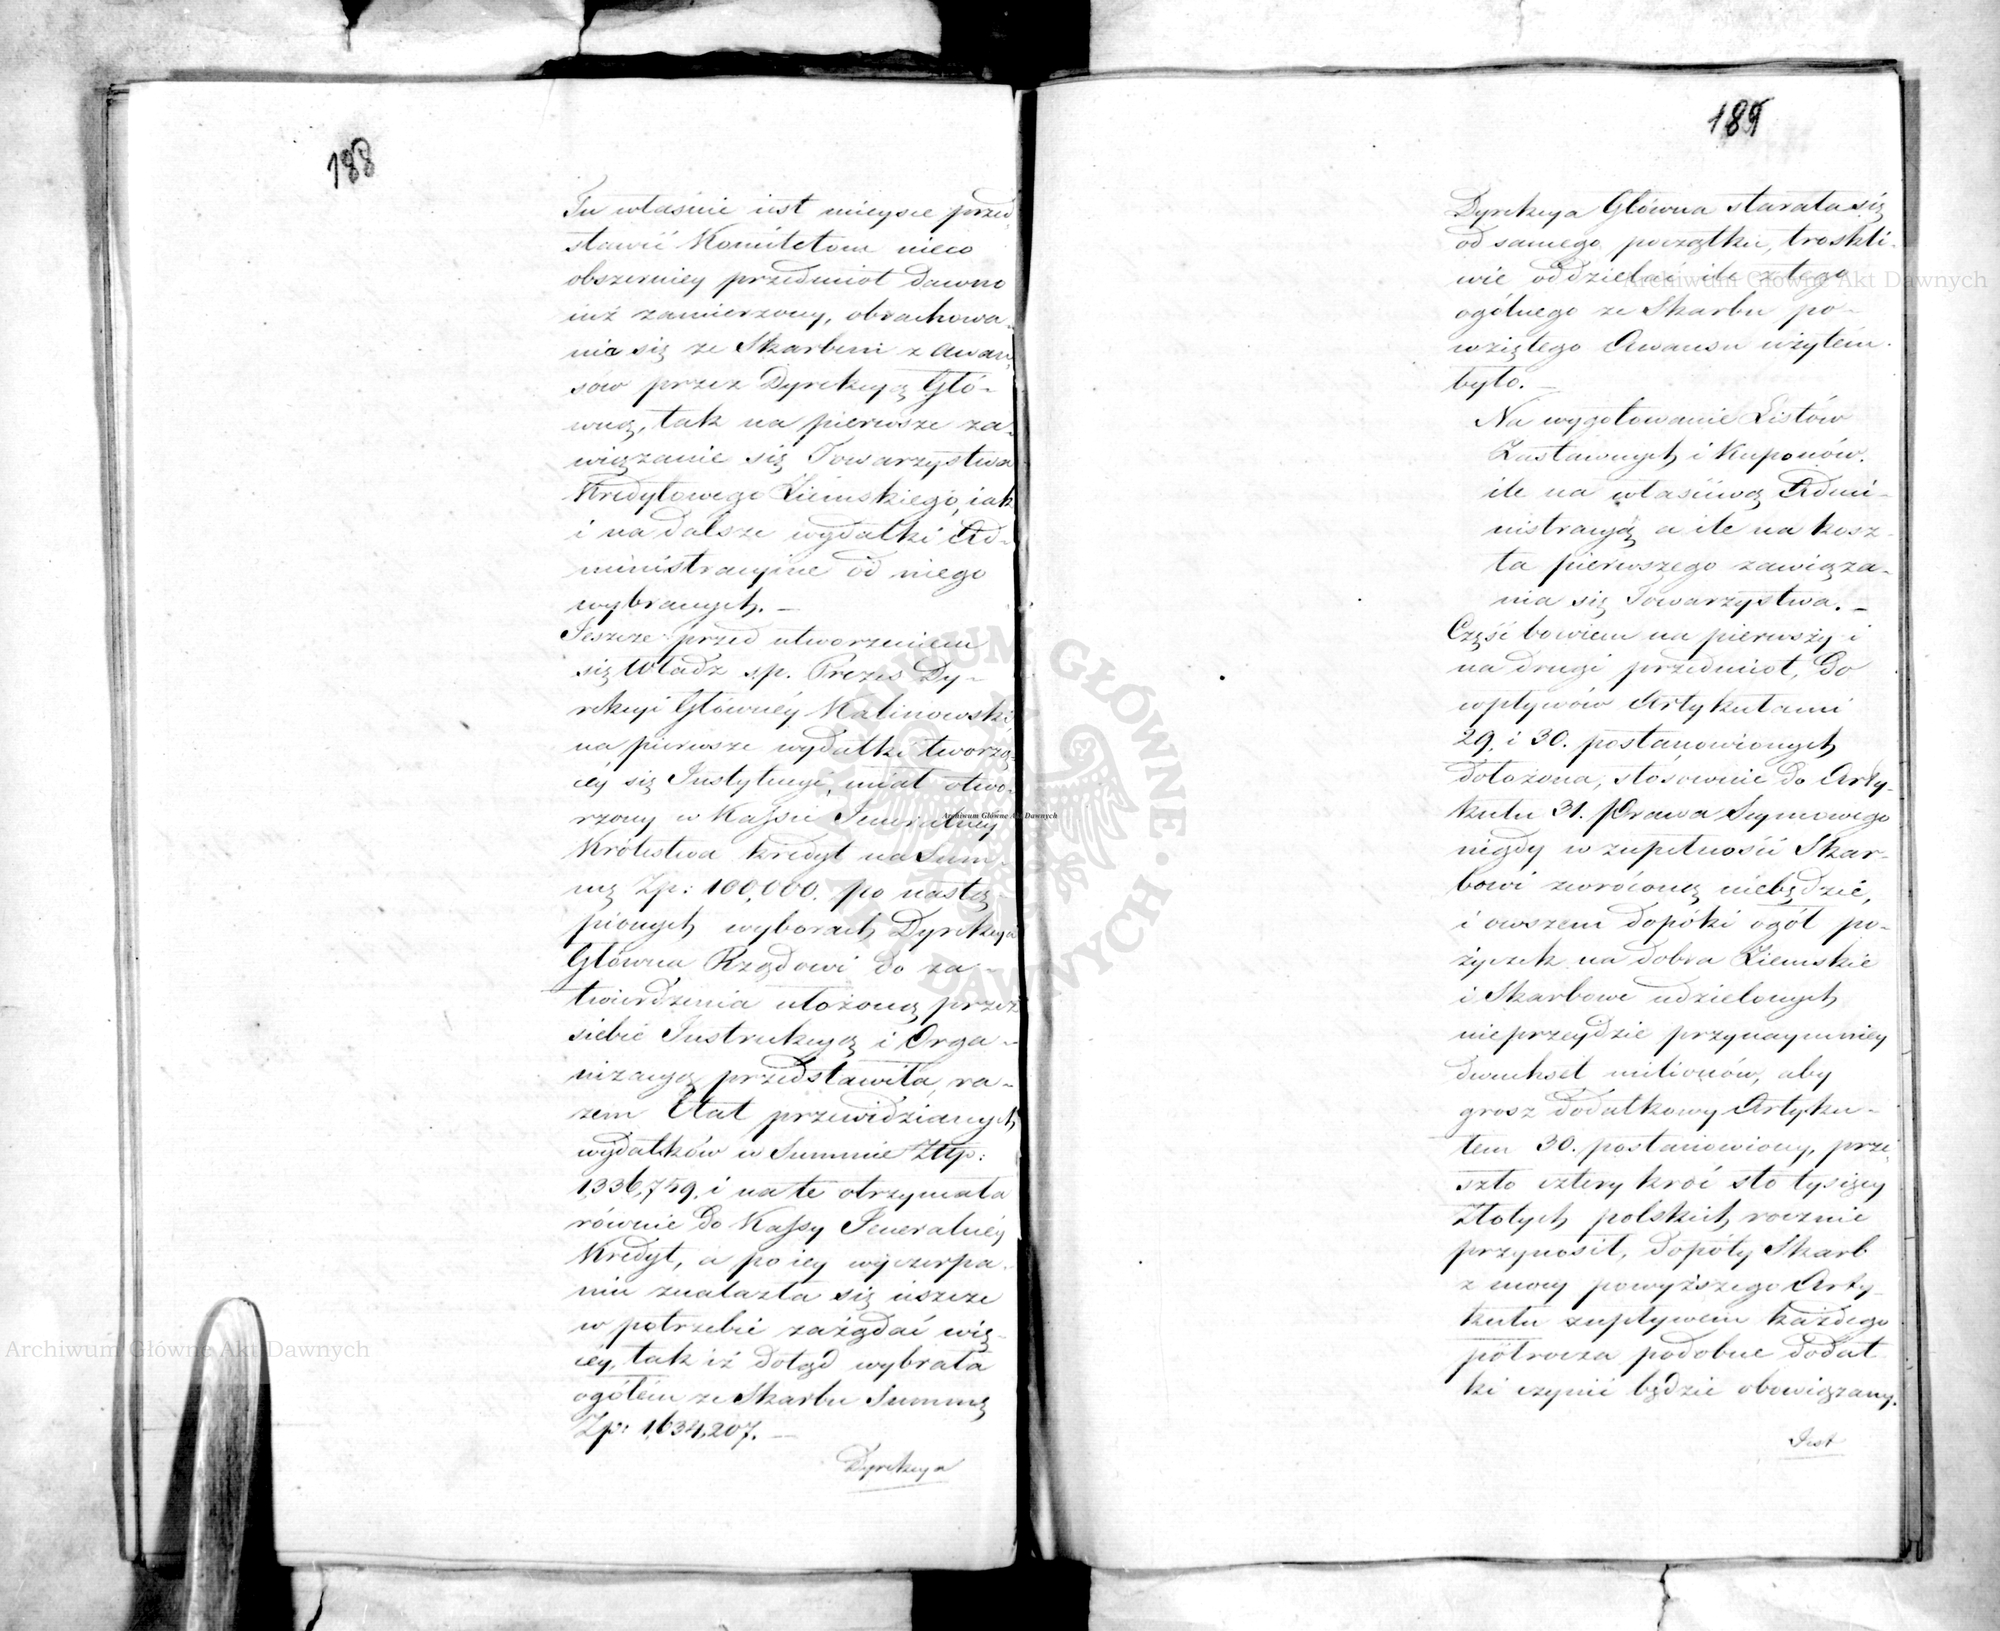 188
Tu właśnie iest mieysce przed
stawić Komitetom nieco
obszerniey przedmiot dawno
iuż zamierzony, obrachowa-
nia się ze Skarbem z Awan-
sów przez Dyrekcyą Głó-
wną, tak na pierwsze za-
wiązanie się Towarzystwa
Kredytowego Ziemskiego, iak
i na dalsze wydatki Ad-
ministracyine od niego
wybranych. —
Ieszcze przed utworzeniem
się Władz s.p. Prezes Dy-
rekcyi Główney Kalinowski
na pierwsze wydatki tworzą-
cey się Instytucyi, miał otwo-
rzony w Kassie Jeneralney
Królestwa kredyt na Sum-
mę Zp: 100,000. po nastą-
pionych wyborach Dyrekcya
Główna Rządowi do za-
twierdzenia ułożoną przez
siebie Instrukcyą i Orga-
nizacyą przedstawiła, ra-
zem Etat przewidzianych
wydatków w Summie Złp:
1,336,759. i na te otrzymała
równie do Kassy Jeneralney
Kredyt, a po iey wyczerpa-
niu znalazła się ieszcze
w potrzebie zażądać wię-
cey, tak iż dotąd wybrała
ogółem ze Skarbu Summę
Zp: 1,634,207. —
Dyrekcya
189
Dyrekcya Główna starała się
od samego początku, troskli-
wie oddzielać ile z tego
ogólnego ze Skarbu po-
wziętego Awansu użytém
było. —
Na wygotowanie Listów
Zastawnych i Kuponów.
ile na właściwą Admi-
nistracyą a ile na kosz-
ta pierwszego zawiąza-
nia się Towarzystwa. —
Część bowiem na pierwszy i
na drugi przedmiot, do
wpływów Artykułami
29. i 30. postanowionych
dołożona, stósownie do Arty-
kułu 31. Prawa Seymowego
nigdy w zupełności Skar-
bowi zwróconą niebędzie,
i owszem dopóki ogół po-
życzek na dobra Ziemskie
i Skarbowe udzielonych
nieprzeydzie przynaymniey
dwuchset milionów, aby
grosz dodatkowy Artyku-
łem 30. postanowiony, prze-
szło cztery kroć sto tysięcy
Złotych polskich rocznie
przynosił, dopóty Skarb
z mocy powyższego Arty-
kułu zupływem każdego
półrocza podobne dodat-
ki czynić będzie obowiązany.
Iest
Archiwum Główne Akt Dawnych
Archiwum Główne Akt Dawnych
Archiwum Główne Akt Dawnych
ARCHIWUM GŁÓWNE AKT DAWNYCH